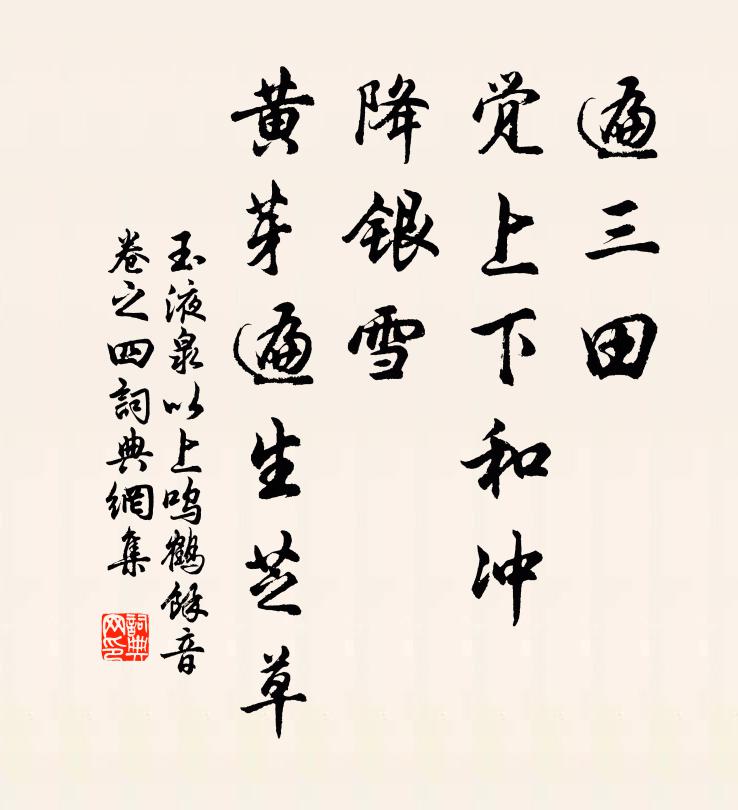 遍三田
覚上下和冲
降银雪
黄芽遍生芝草
玉液泉以上鸣鹤馀音
卷之四詞典網集
詞典网印